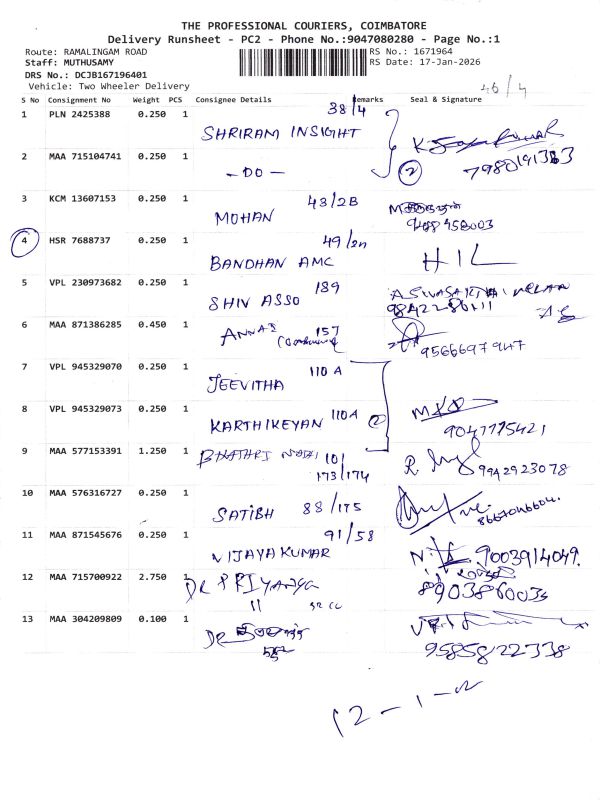 THE PROFESSIONAL COURIERS, COIMBATORE
Delivery Runsheet - PC2 - Phone No.:9047080280 - Page No.:1
Route: RAMALINGAM ROAD RS No.: 1671964
Staff: MUTHUSAMY RS Date: 17-Jan-2026
DRS No.: DCJB167196401
Vehicle: Two Wheeler Delivery 46/4
S No Consignment No Weight PCS Consignee Details Remarks Seal & Signature
1 PLN 2425388 0.250 1 SHRIRAM INSIGHT 38/4
2 MAA 715104741 0.250 1 -DO- 2
3 KCM 13607153 0.250 1 MOHAN 43/2B
4 HSR 7688737 0.250 1 BANDHAN AMC 49/2n HIL
5 VPL 230973682 0.250 1 SHIV ASSO 189
6 MAA 871386285 0.450 1 157
7 VPL 945329070 0.250 1 JEEVITHA 110 A
8 VPL 945329073 0.250 1 KARTHIKEYAN 110A 2 9047775421
9 MAA 577153391 1.250 1 101 173/174 9942923078
10 MAA 576316727 0.250 1 SATIBH 88/175 8667046604.
11 MAA 871545676 0.250 1 VIJAYAKUMAR 91/58 9003914049.
12 MAA 715700922 2.750 1 DR PRIYANGA 11
13 MAA 304209809 0.100 1 DR 9585822338
12-1-